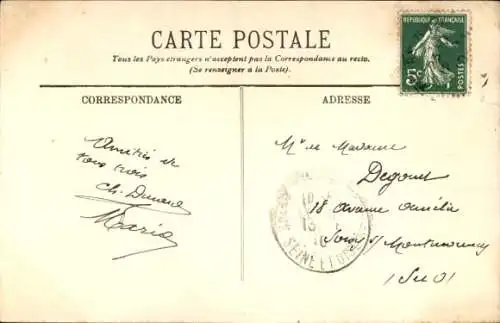 CARTE POSTALE
Tous les Pays étrangers n'acceptent pas la Correspondance au recto.
(Se renseigner à la Poste).
RÉPUBLIQUE FRANÇAISE
5c
POSTES
CORRESPONDANCE
ADRESSE
Amitiés de
tous trois
Ch. Durand
Maria
Mr et Madame
Degouet
18 Avenue Amélia
Soisy s/ Montmorency
(S et O)
SEINE ET OISE